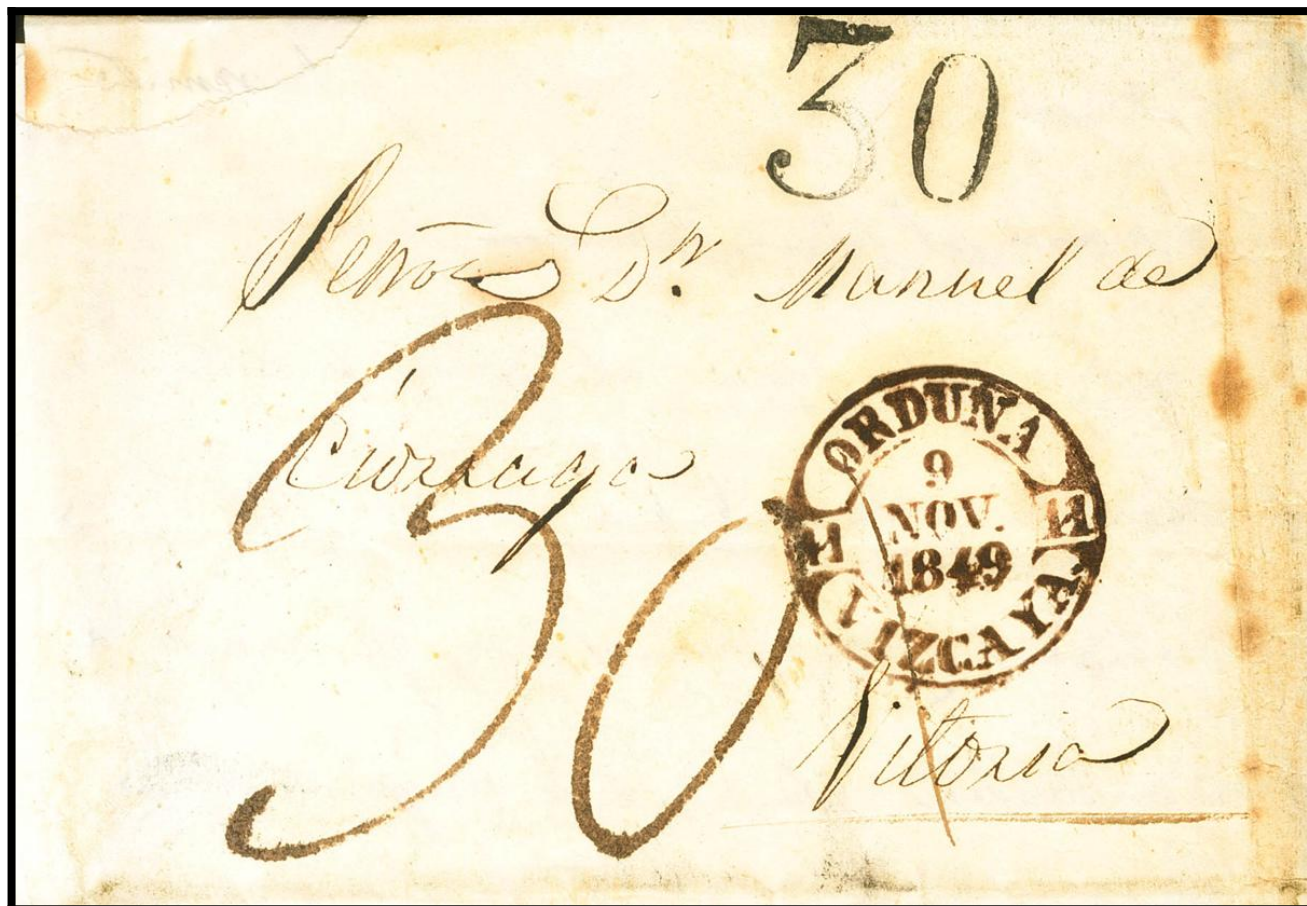 30
Señor Dn. Manuel de
Ciorraga
30
ORDUÑA
9
NOV.
1849
H H
VIZCAYA.
Vitoria